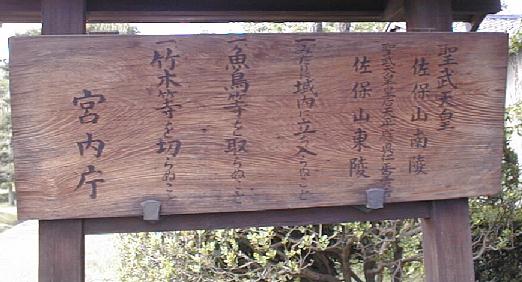 聖武天皇
佐保山南陵
聖武天皇皇后天平応真仁正皇太后
佐保山東陵
一みだりに域内に立ち入らぬこと
一魚鳥等を取らぬこと
一竹木等を切らぬこと
宮内庁